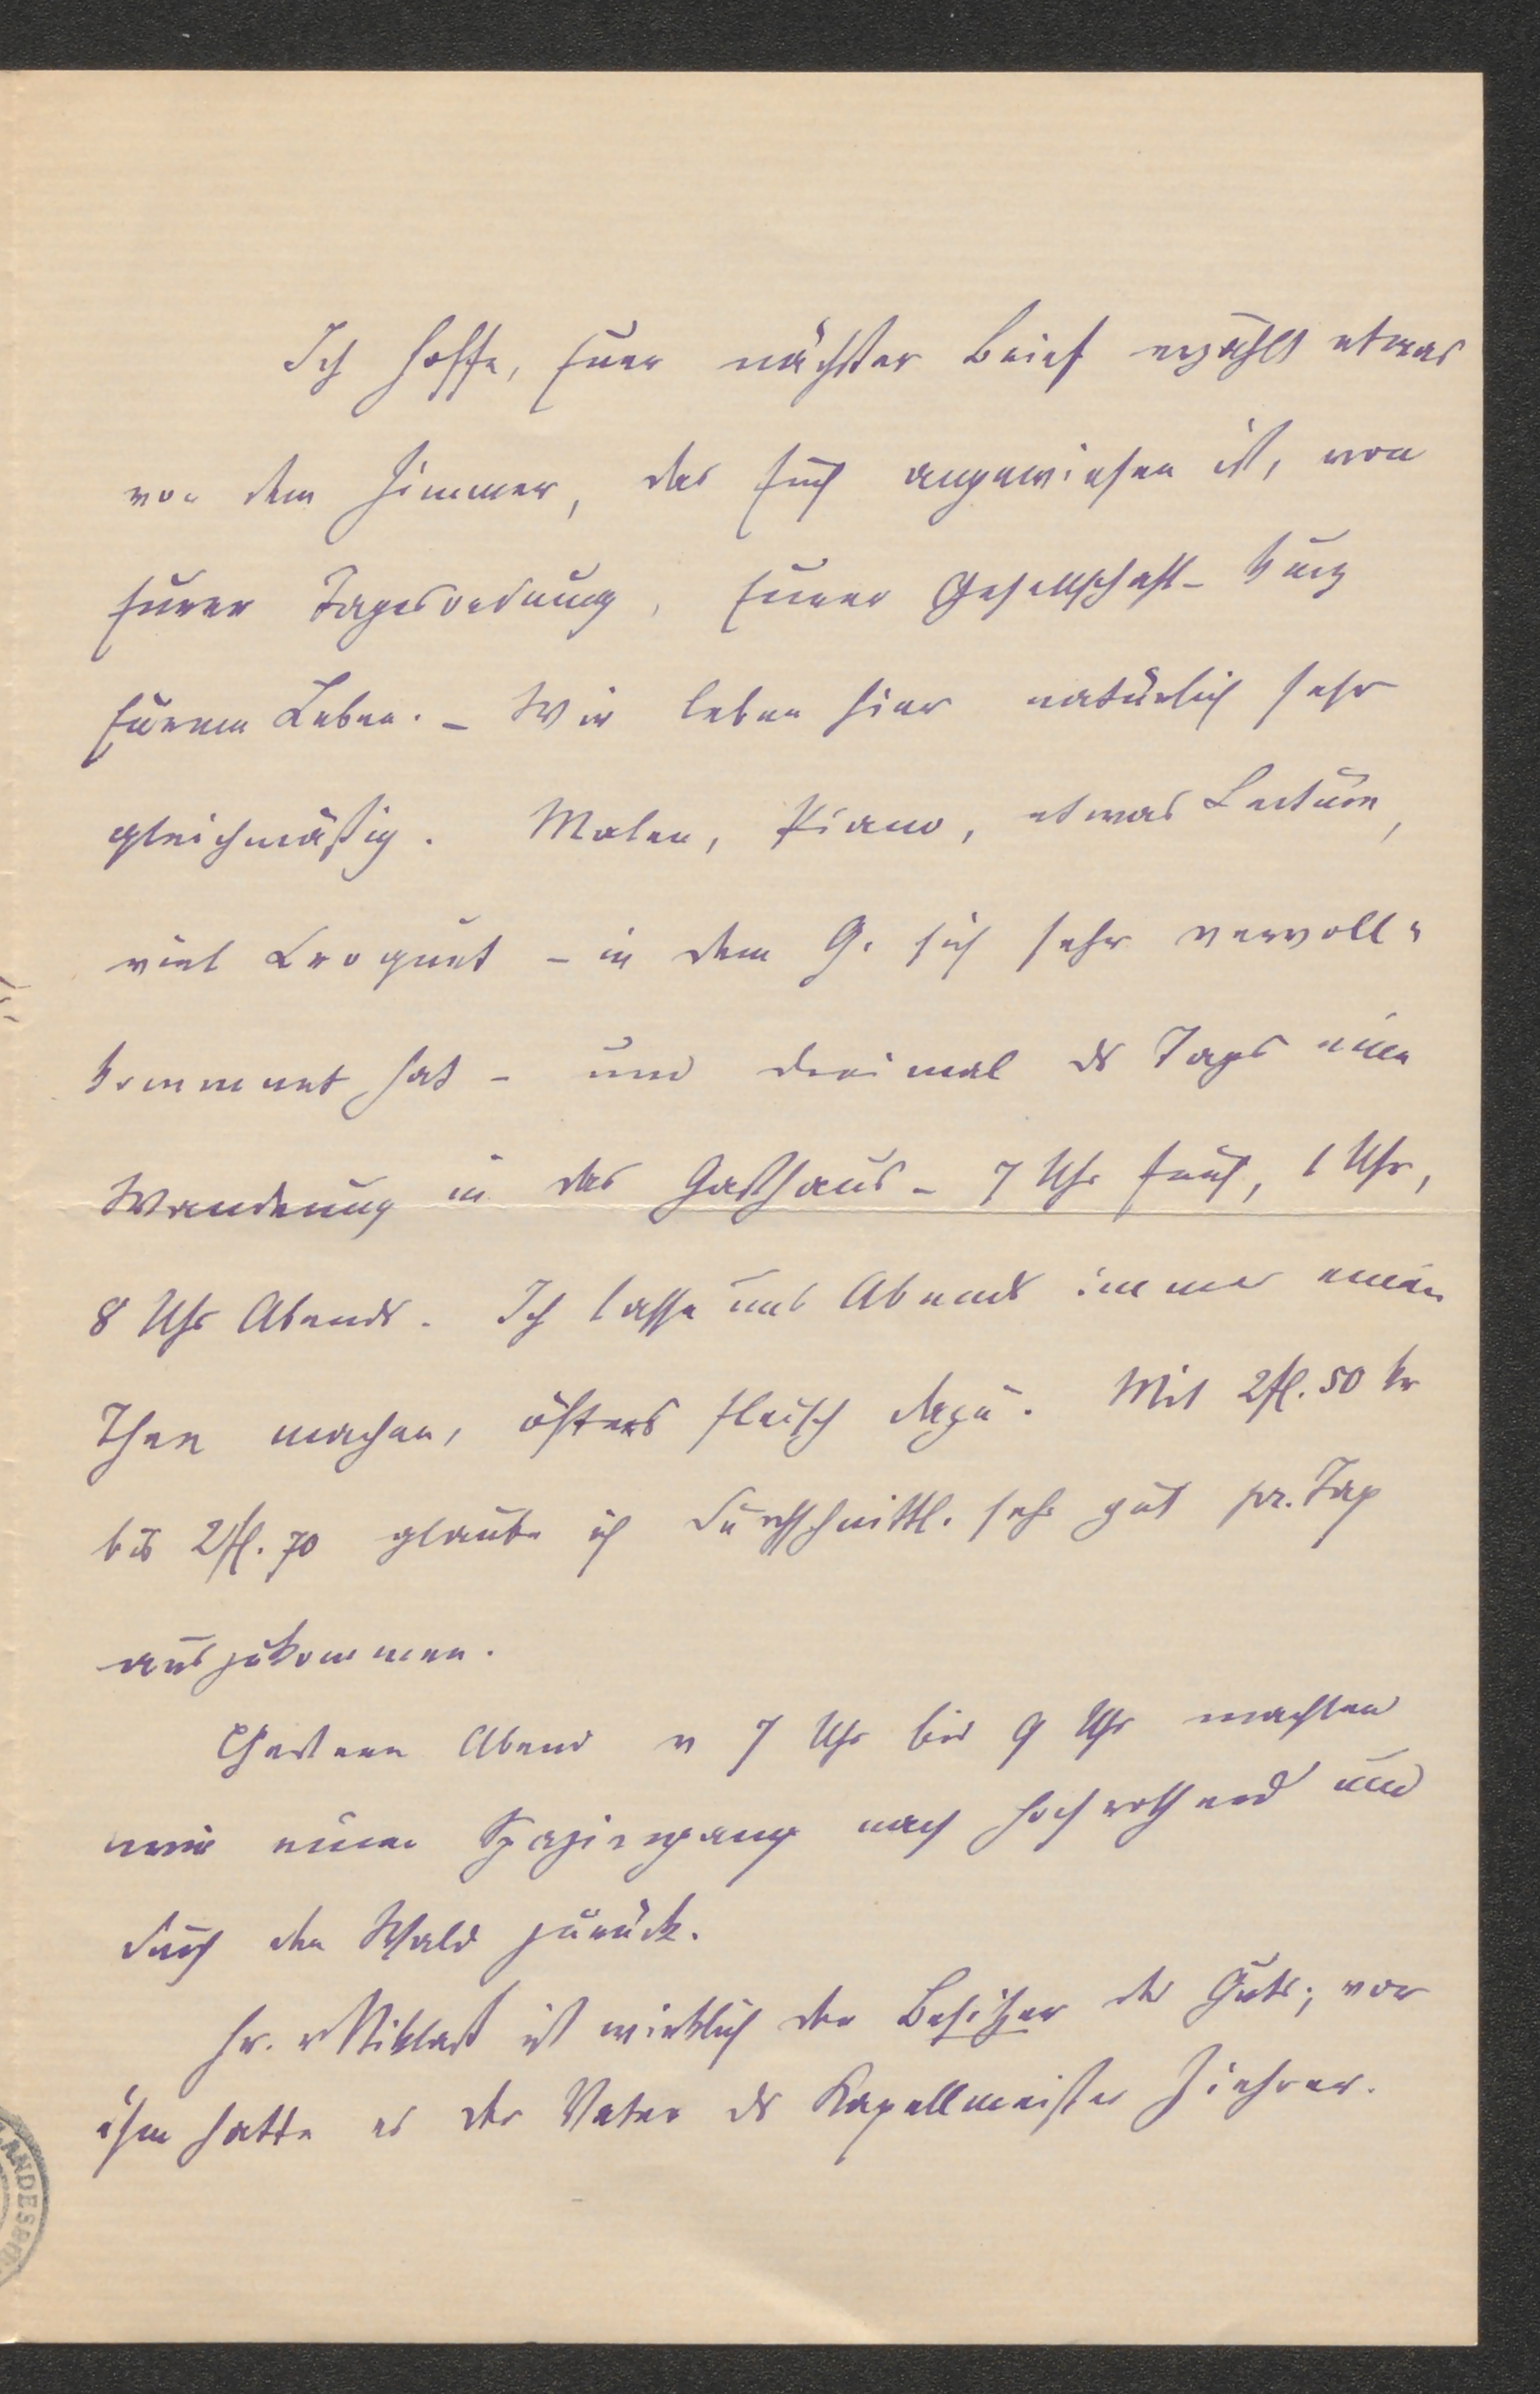 Ich hoffe, Euer nächster Brief erzählt etwas
von dem Zimmer, das Euch angewiesen ist, von
Eurer Tagesordnung, Eurer Gesellschaft – kurz
Eurem Leben. – Wir leben hier natürlich sehr
gleichmäßig. Malen, Piano, etwas Lectüre,
viel Croquet – in dem G. sich sehr vervoll-
kommnet hat – und dreimal ds Tags eine
Wanderung in das Gasthaus – 7 Uhr früh, 1 Uhr,
8 Uhr Abends. Ich lasse uns Abends immer einen
Thee machen, öfters Fleisch dazu. Mit 2 fl. 50 kr
bis 2 fl. 70 glaube ich durchschnittl. sehr gut pr. Tag
auszukommen.
Gestern Abend v 7 Uhr bis 9 Uhr machten
wir einen Spaziergang nach Hochrotherd und
durch den Wald zurück.
Hr. v Miklast ist wirklich der Besitzer des Guts; vor
ihm hatte es der Vater ds Kapellmeister Ziehrer.
LANDES